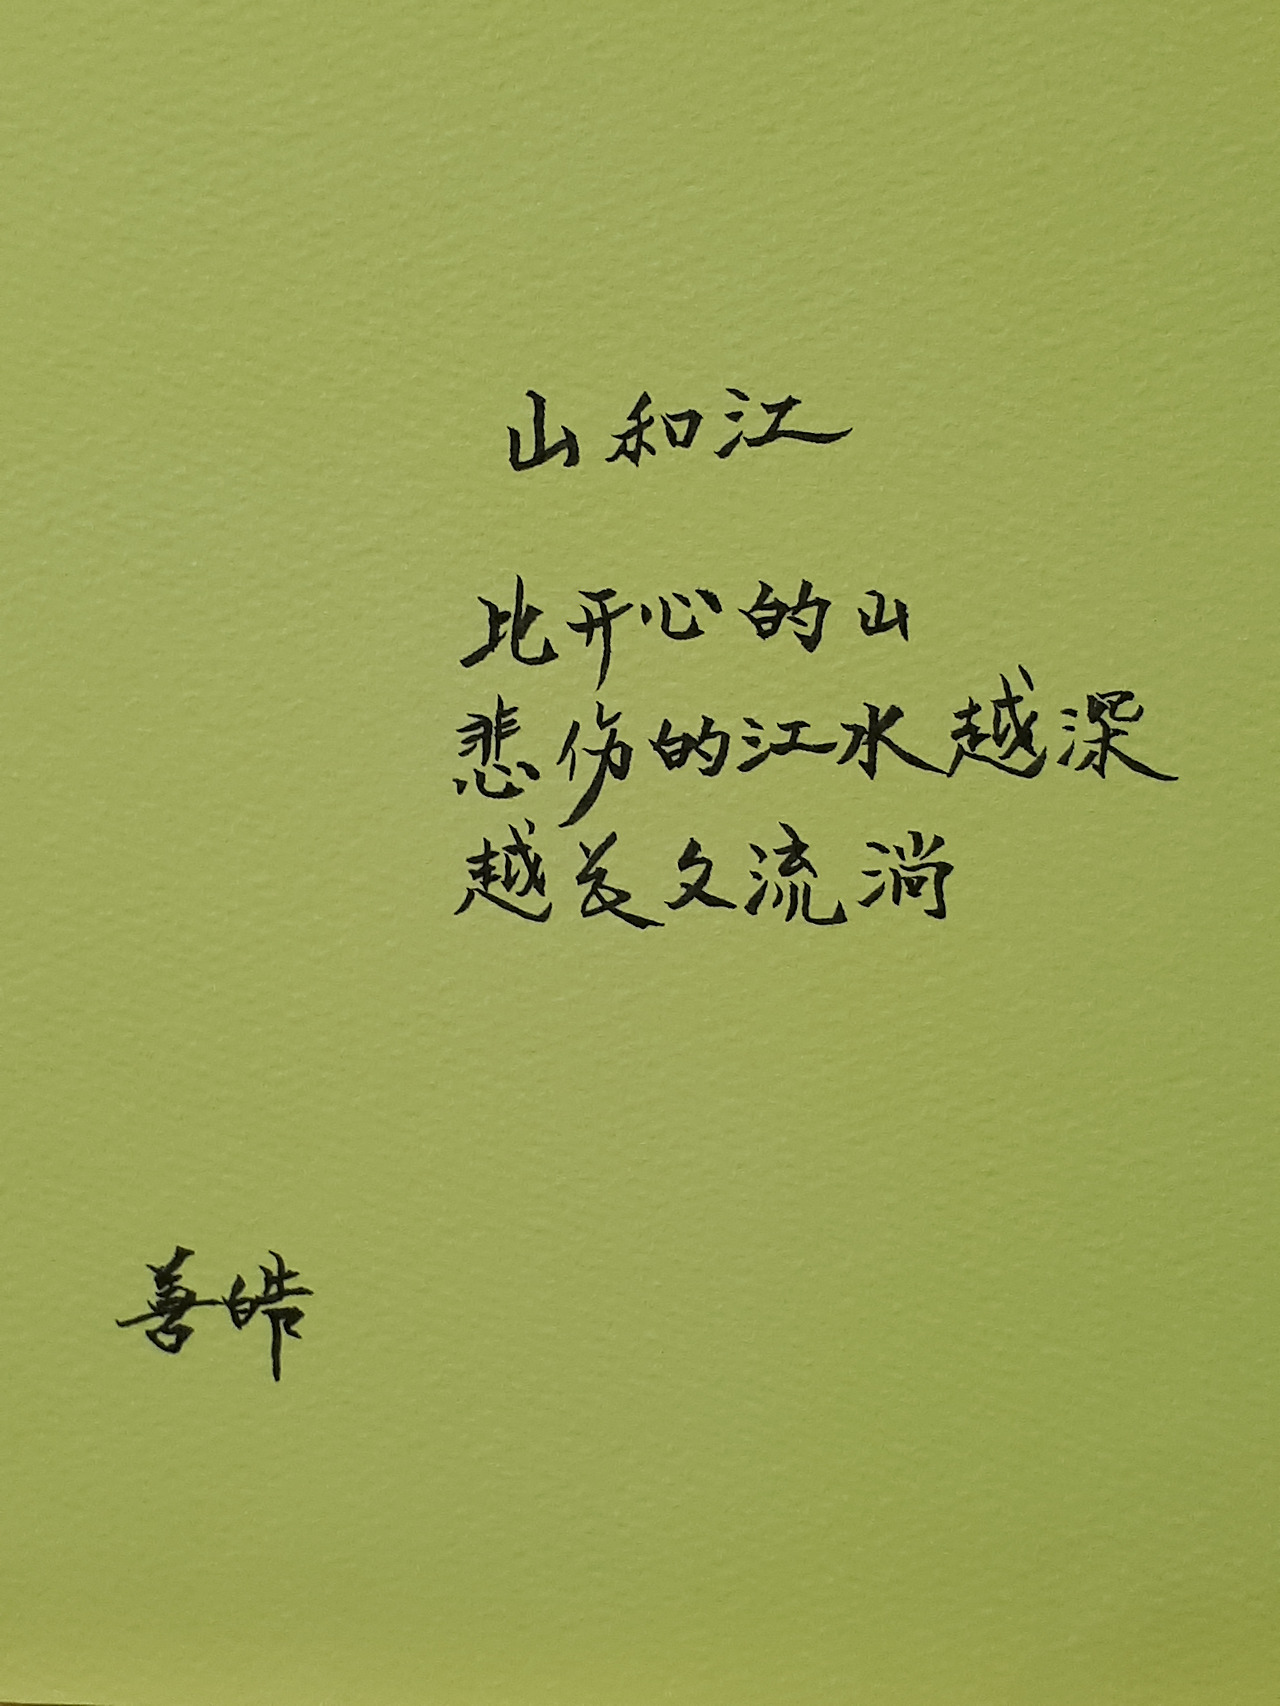 山和江
比开心的山
悲伤的江水越深
越长久流淌
善皓